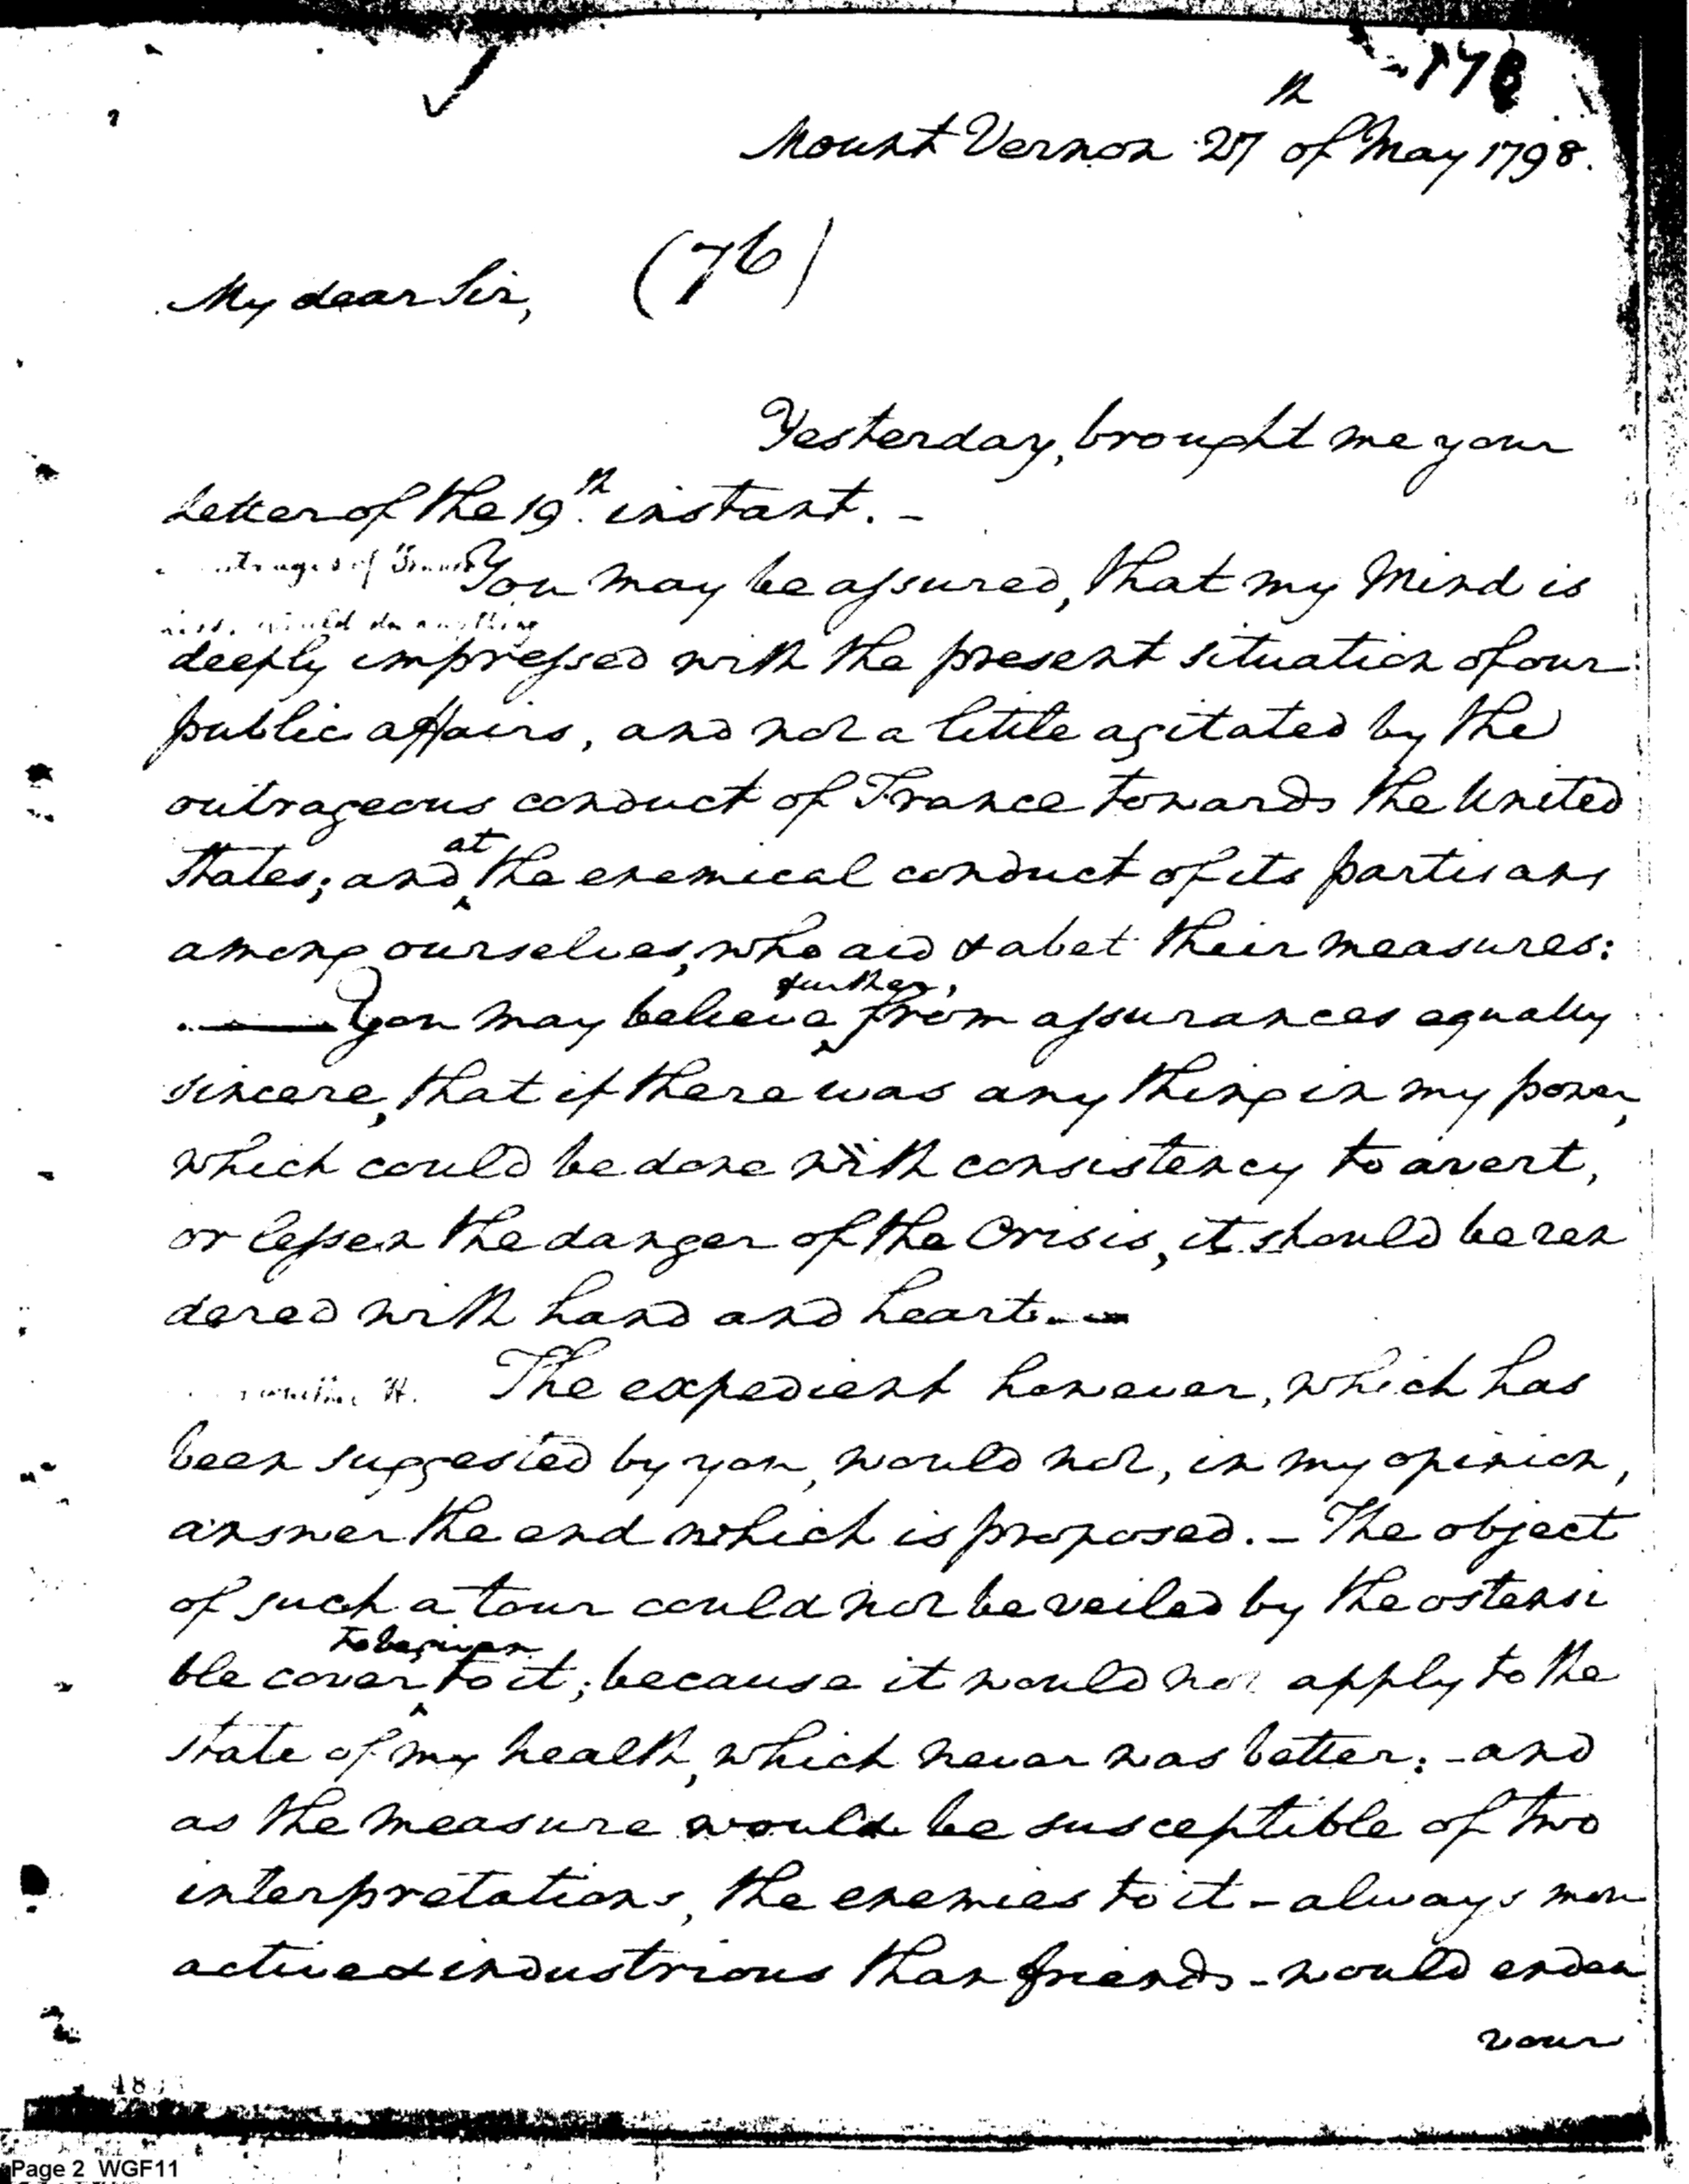 178
Mount Vernon 27th of May 1798.
(76)
My dear Sir,
Yesterday, brought me your
letter of the 19th. instant. -
of France
would do anything
You may be assured, that my Mind is
deeply impressed with the present situation of our
public affairs, and not a little agitated by the
outrageous conduct of France towards the United
States; and at the enemical conduct of its partisans
among ourselves, who aid & abet their measures:
You may believe further, from assurances equally
sincere, that if there was any thing in my power,
which could be done with consistency to avert,
or lessen the danger of the Crisis, it should be ren
dered with hand and heart. -
The expedient however, which has
been suggested by you, would not, in my opinion,
answer the end which is proposed. - The object
of such a tour could not be veiled by the ostensi
ble cover to be given to it; because it would not apply to the
state of my health, which never was better: - and
as the measure would be susceptible of two
interpretations, the enemies to it - always more
active & industrious than friends - would endea
vour
Page 2 WGF11